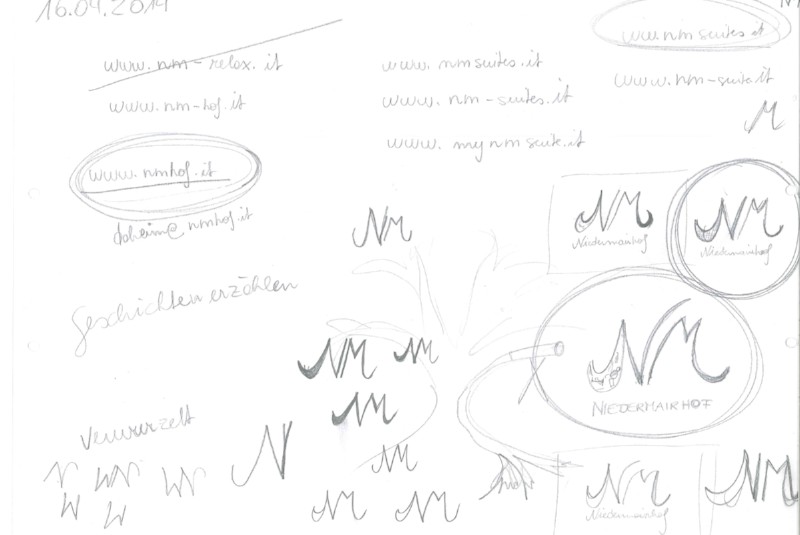 16.04.2014
www.nm-relax.it
www.nm-hof.it
www.nmhof.it
daheim@nmhof.it
www.nmsuites.it
www.nm-suites.it
www.mynmsuite.it
www.nmsuites.it
www.nm-suite.it
M
NM
NM
Niedermairhof
NM
Niedermairhof
Geschichten erzählen
NM
NIEDERMAIRHOF
NM NM
NM
NM
NM NM
verwurzelt
N
NM
Niedermairhof
NM